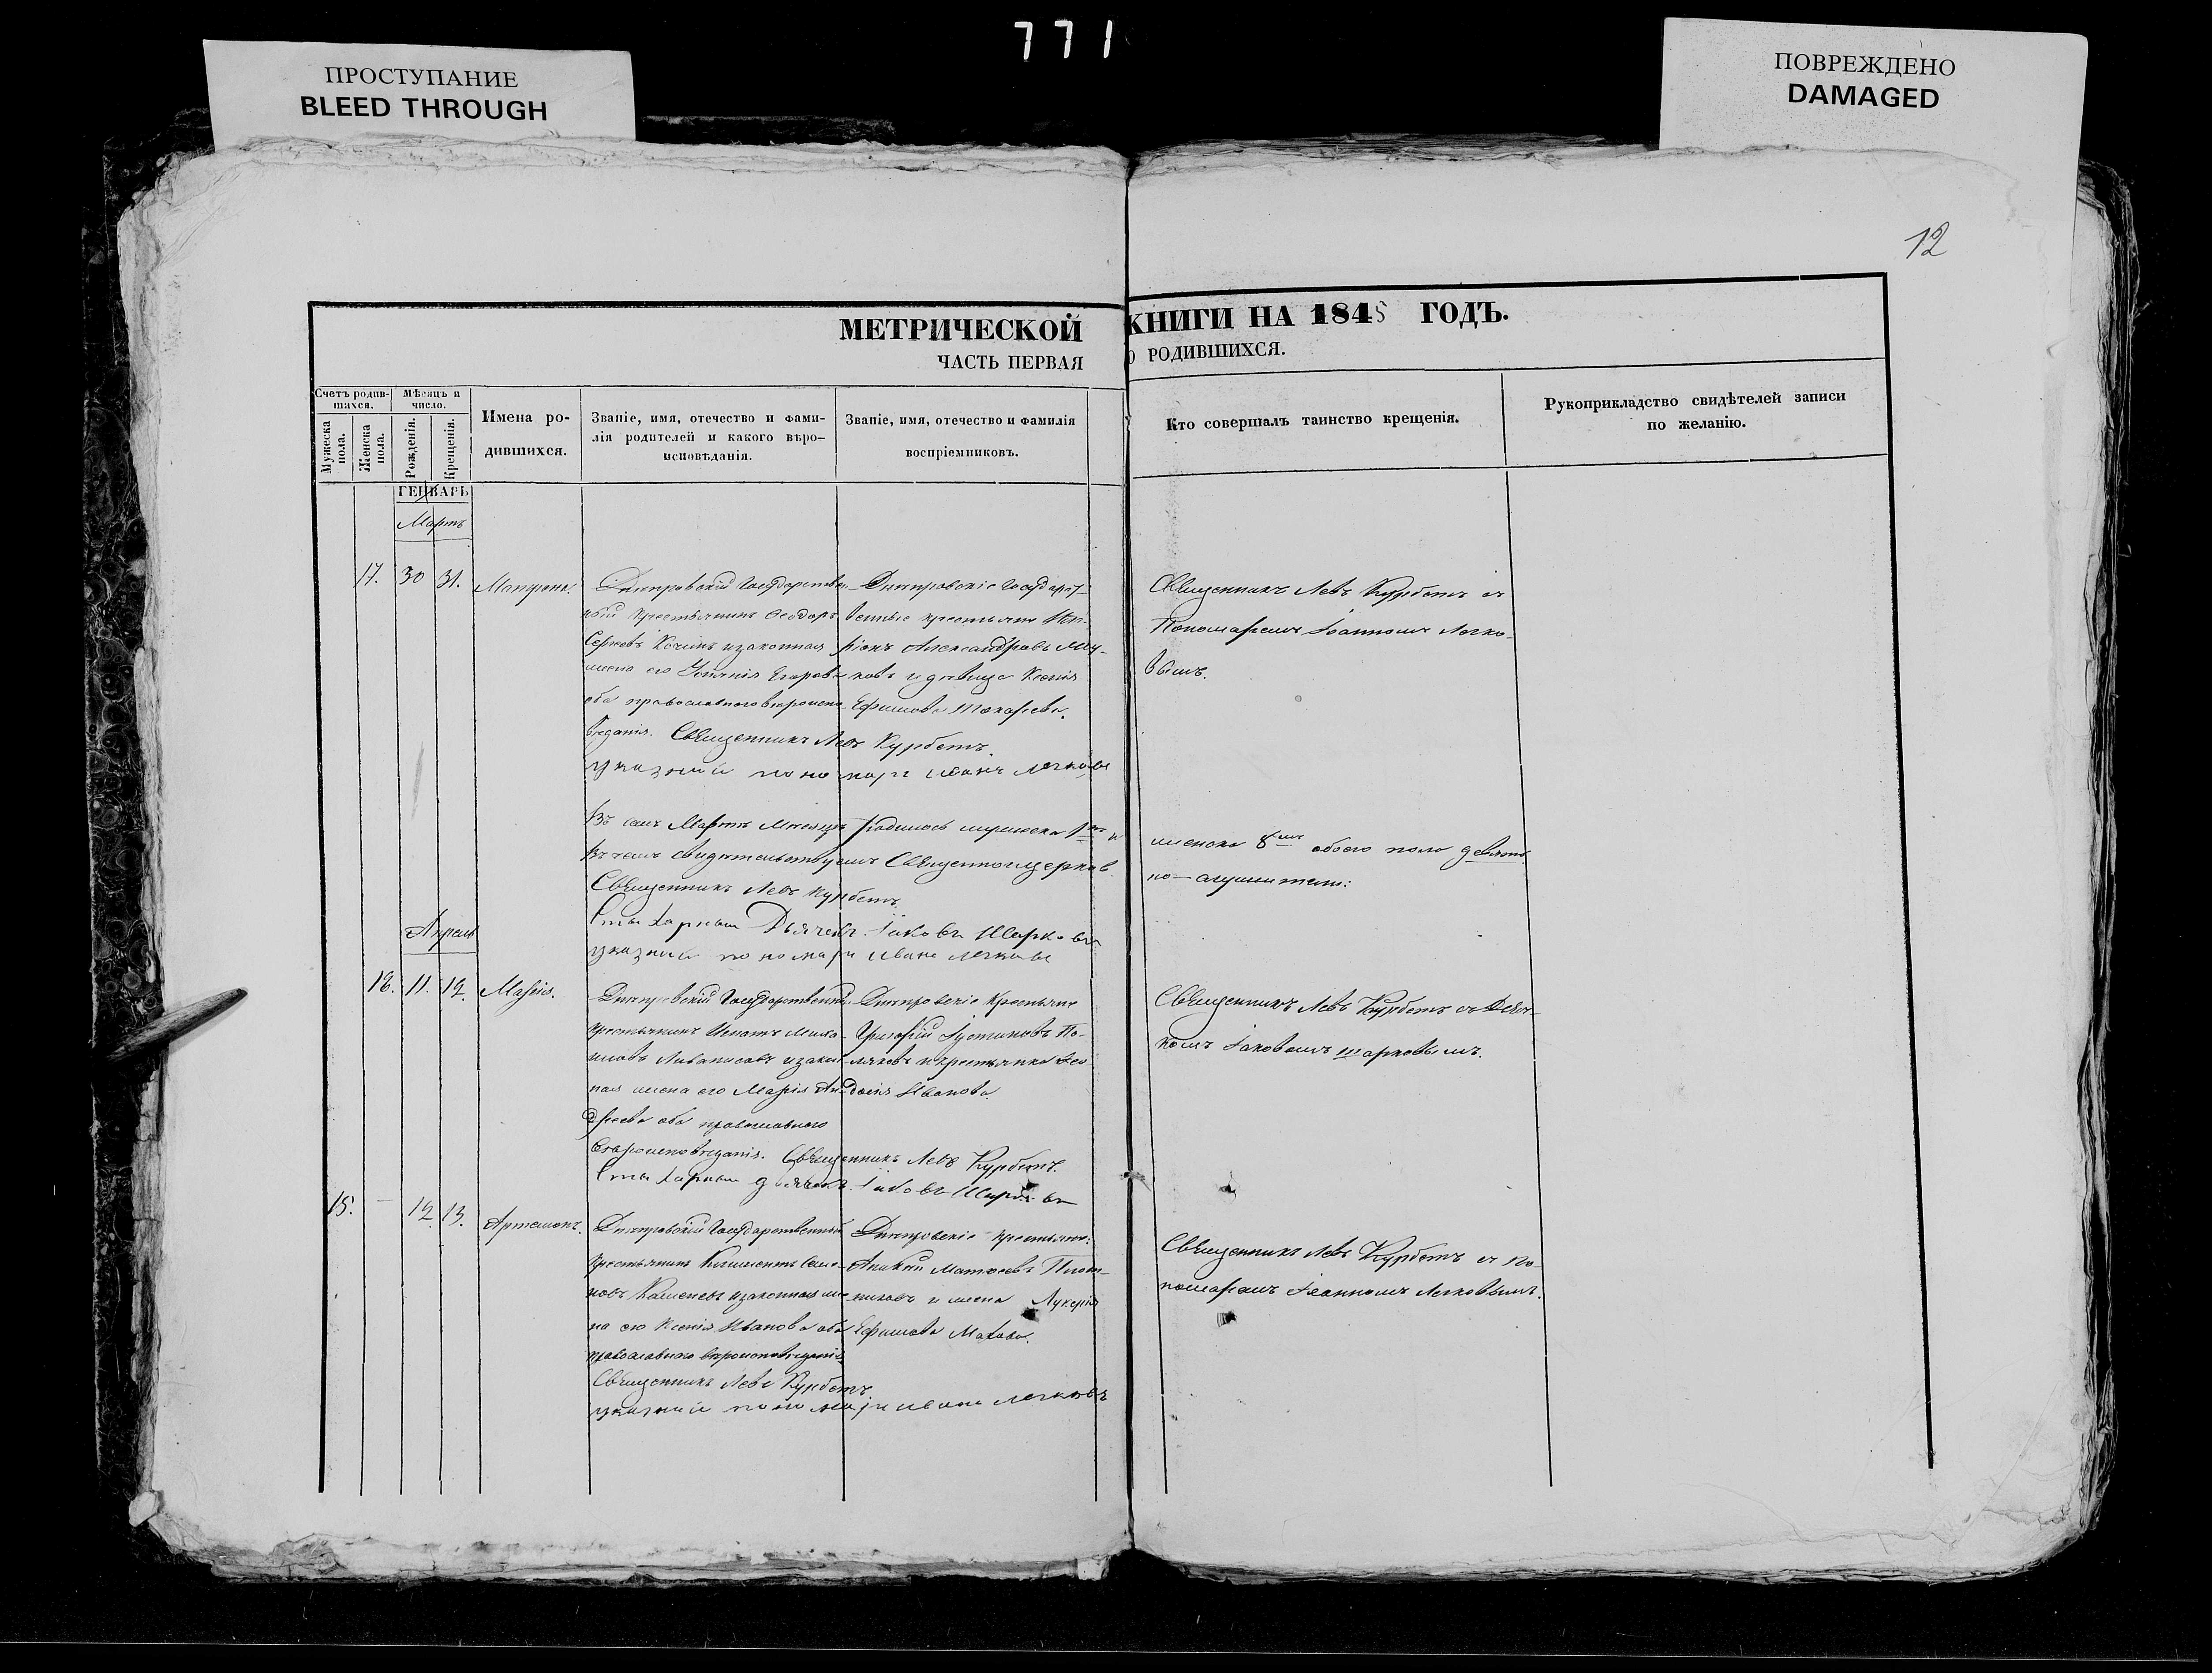 771
ПРОСТУПАНИЕ
BLEED THROUGH
ПОВРЕЖДЕНО
DAMAGED
12
МЕТРИЧЕСКОЙ КНИГИ НА 1845 ГОДЪ.
ЧАСТЬ ПЕРВАЯ О РОДИВШИХСЯ.
Счетъ родив-
шихся.
Мужеска
пола.
Женска
пола.
Мѣсяцъ и
число.
Рожденія.
Крещенія.
Имена ро-
дившихся.
Званіе, имя, отечество и фами-
лія родителей и какого вѣро-
исповѣданія.
Званіе, имя, отечество и фамилія
воспріемниковъ.
Кто совершалъ таинство крещенія.
Рукоприкладство свидѣтелей записи
по желанію.
ГЕНВАРЬ
Мартъ
17. 30 31.
Днѣпровскій Государствен-
ный крестьянинъ Ѳеодоръ
Сергѣевъ и законная
жена его Егорова
оба православнаго вѣроиспо-
вѣданія. Священникъ Левъ Курбетъ.
указный пономарь Иванъ Легковъ
Днѣпровскіе государст-
венные крестьяне
Александровъ
и дѣвица Ксенія
Ефимова Токарева.
Священникъ Левъ Курбетъ съ
Пономаремъ Іоанномъ Легко-
вымъ.
Въ семъ Мартѣ Мѣсяцѣ родилось мужеска и
женска 8 обоего пола девять
Въ чемъ свидѣтельствуемъ Священноцерков
но-служители:
Священникъ Левъ Курбетъ.
Стихарный Дьячекъ Іаковъ Шарковъ
указный пономарь Иванъ Легковъ
Апрель
18. 11. 12. Марія.
Днѣпровскій Государственный
крестьянинъ Игнатъ
и закон-
ная жена его Марія Ан-
дреева оба православнаго
вѣроисповѣданія. Священникъ Левъ Курбетъ.
Стихарный дьячекъ Іаковъ Шарковъ
Днѣпровскіе крестьяне
Григорій Іустиновъ По-
ляковъ и крестьянка Ѳео-
досія Иванова.
Священникъ Левъ Курбетъ съ Дьяч-
комъ Іаковомъ Шарковымъ.
15. – 12 13. Артемонъ.
Днѣпровскій Государственный
крестьянинъ Климентъ Семе-
новъ Каменевъ и законная же-
на его Ксенія Иванова оба
православнаго вѣроисповѣданія.
Священникъ Левъ Курбетъ.
указный пономарь Иванъ Легковъ
Днѣпровскіе крестьяне:
Аникій Матвѣевъ Плот-
никовъ и жена Лукерія
Ефимова Махова.
Священникъ Левъ Курбетъ съ по-
номаремъ Іоанномъ Легковымъ.